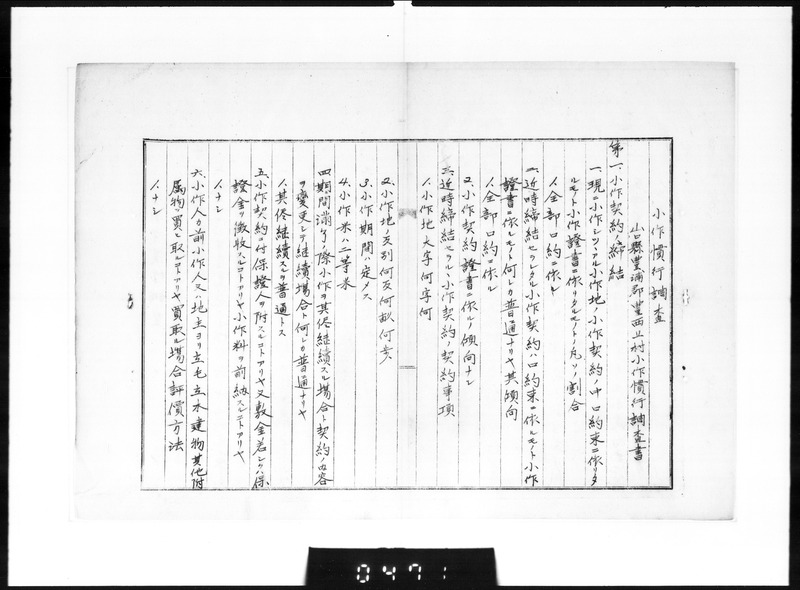 小作慣行調査
山口縣豊浦郡豊西上村小作慣行調査書
第一、小作契約ノ締結
一、現ニ小作シツヽアル小作地ノ小作契約ノ中口約束ニ依リタ
ルモノト小作證書ニ依リタルモノトノ凡ソノ割合
1、全部口約ニ依ル
二、近時締結セラレタル小作契約ハ口約束ニ依ルモノト小作
證書ニ依ルモノト何レカ普通ナリヤ其傾向
1、全部口約ニ依ル
2、小作契約證書ニ依ルノ傾向ナシ
三、近時締結セラルヽ小作契約ノ契約事項
1、小作地大字何字何
2、小作地ノ反別何反何畝何歩
3、小作期間ハ定メス
4、小作米ハ二等米
四、期間滿了ノ際小作ヲ其侭継續スル場合ト契約ノ内容
ヲ変更シテ継續場合ト何レカ普通ナリヤ
1、其侭継續スルヲ普通トス
五、小作契約ニ付保證人ヲ附スルコトアリヤ又敷金若シクハ保
證金ヲ徴收スルコトアリヤ小作料ヲ前納スルコトアリヤ
1、ナシ
六、小作人カ前小作人又ハ地主ヨリ立毛立木建物其他附
属物買ヒ取ルコトアリヤ買取ル場合評價方法
1、ナシ
0471